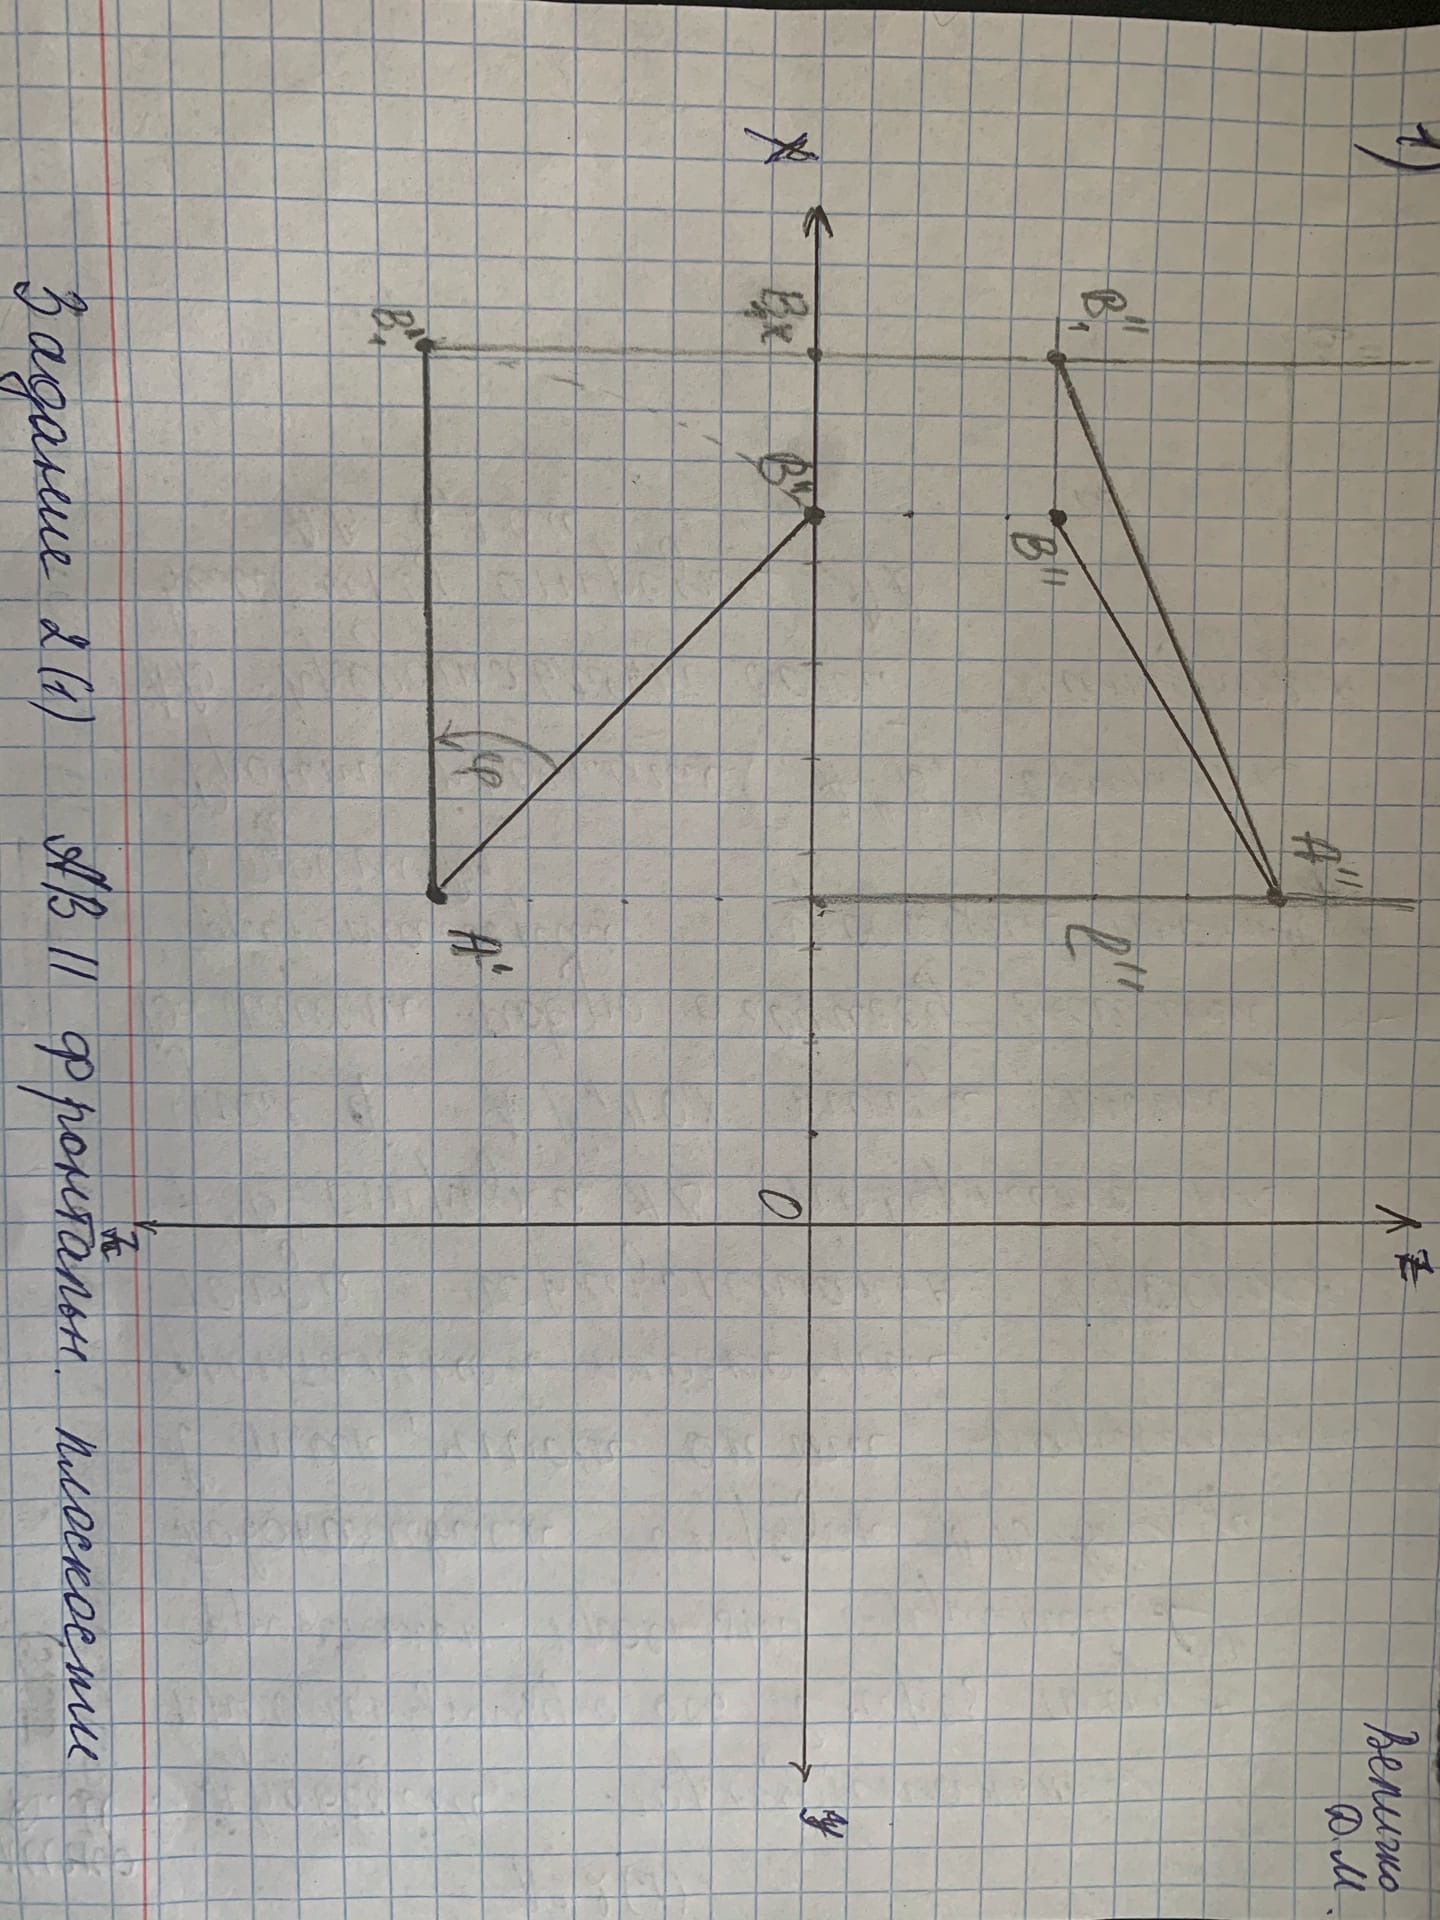 1)
Z
Величко
Д.М.
A''
B''₁
B''
l''
X
B₁x
B''
O
y
φ
A'
B'₁
Задание 2(1) AB || фронтальн. плоскости